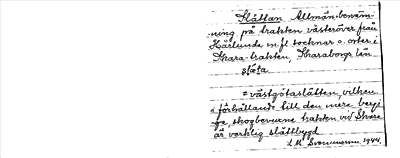 Slättan Allmän benäm-
ning på trakten västeröver från
Härlunda m.fl. socknar o. orter i
Skara-trakten, Skaraborgs län
släta
= västgötaslätten, vilken
i förhållande till den mera bergi-
ga, skogbevuxna trakten vid Skara
är verklig slättbygd
1944.